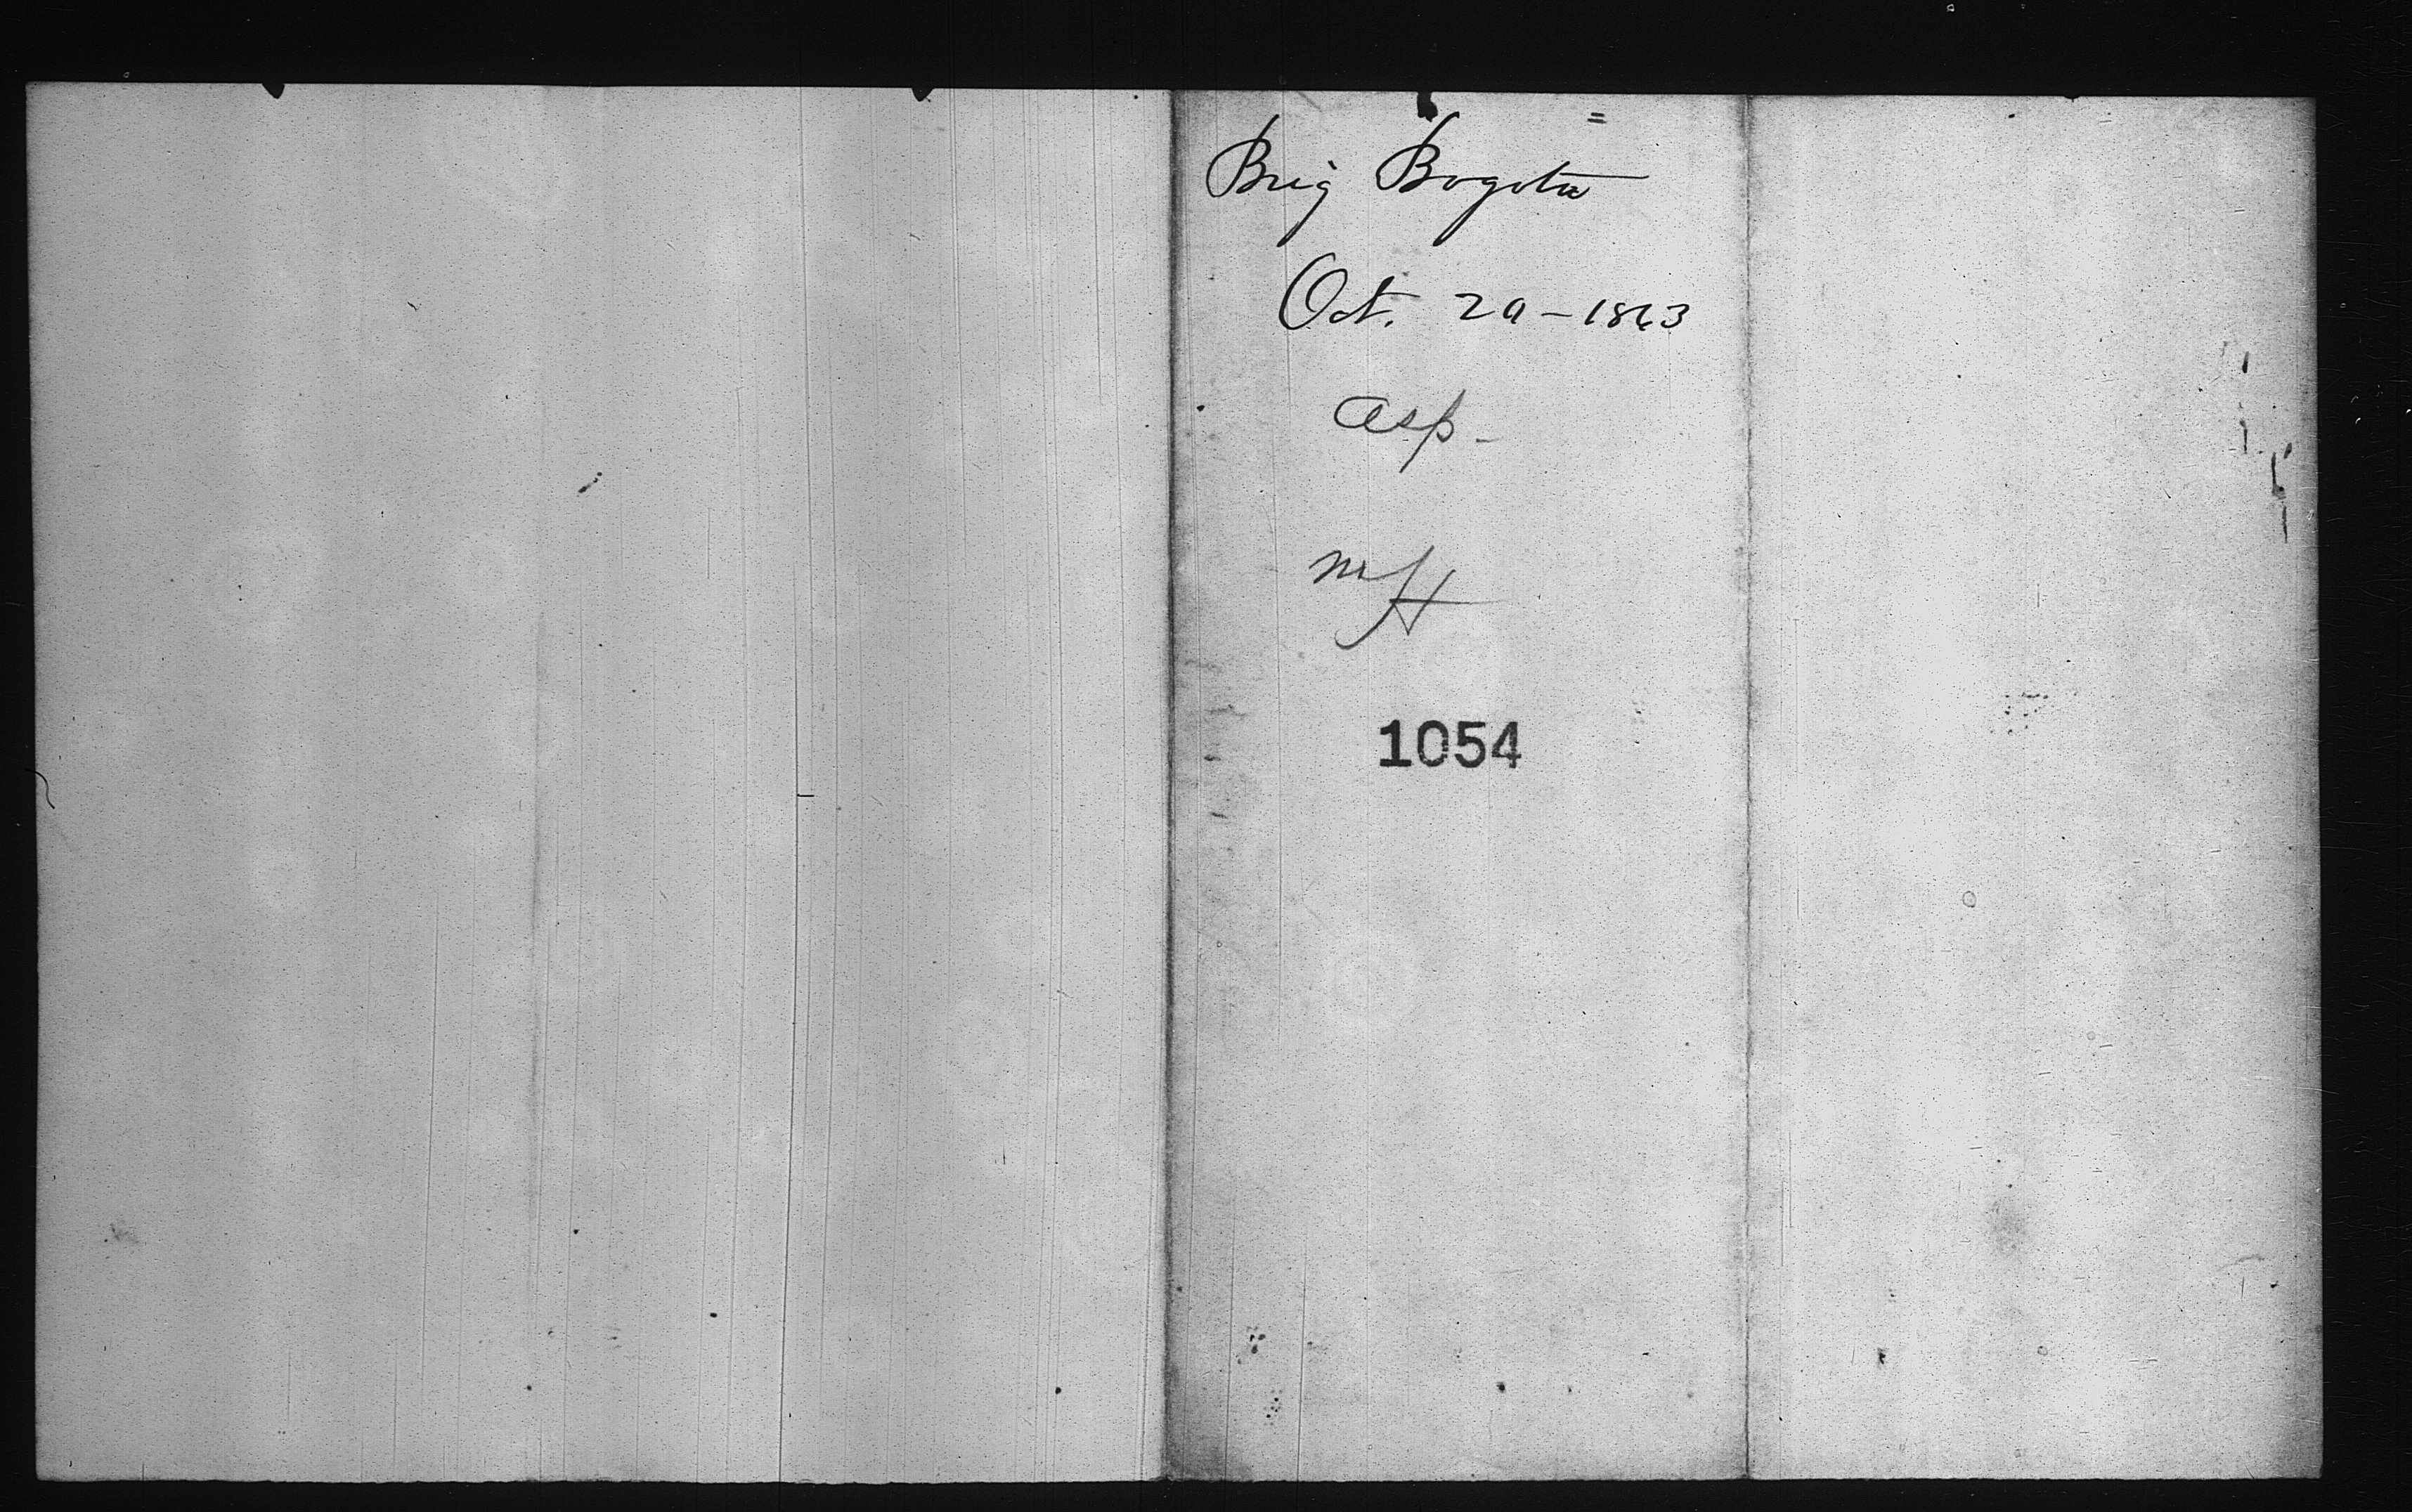 Brig Bogota
Oct. 29 - 1863
asp -
1054